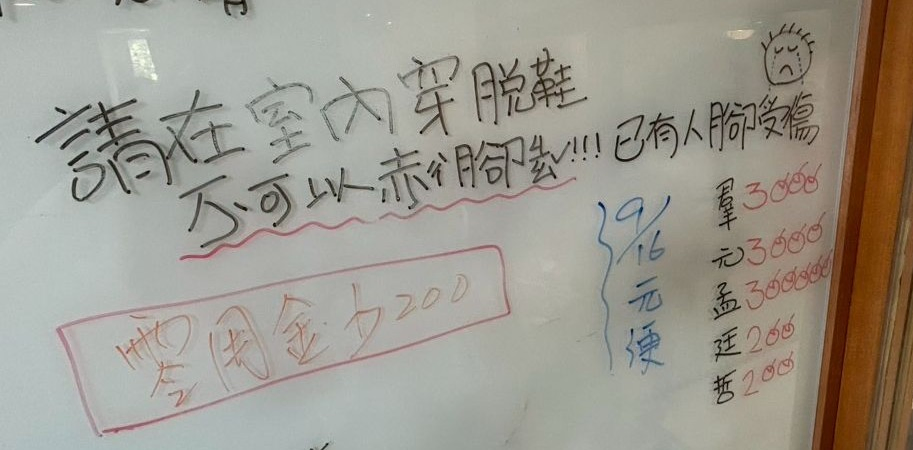 請在室內穿脫鞋
不可以赤行腳出!!! 已有人腳受傷
零用金少200
9/16
元
便
羣3000
元3000
孟300000
廷200
哲200